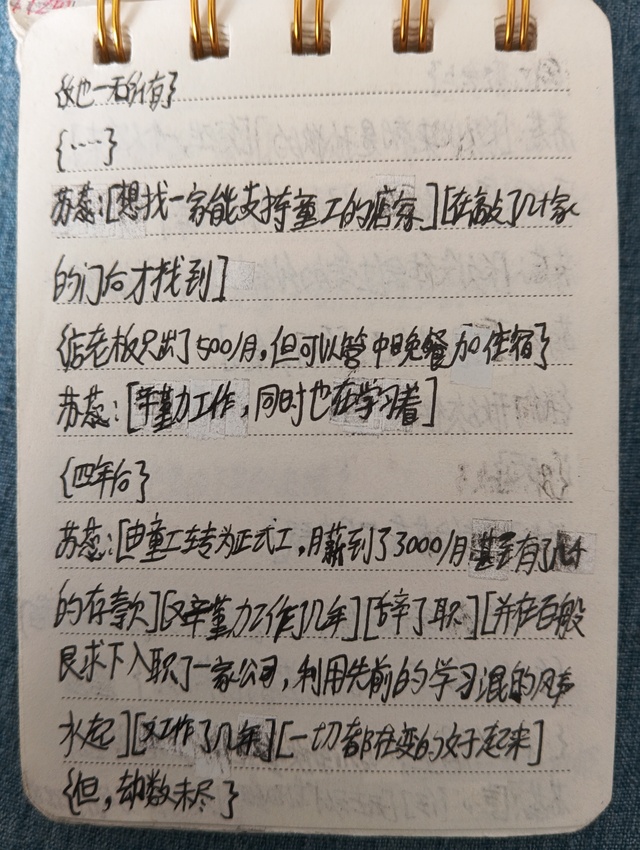 {故也一无所有}
{……}
苏蕊:[想找一家能支持童工的店家][在敲了几十家
的门后才找到]
{店老板只出了500/月,但可以管中日晚餐加住宿}
苏蕊:[辛勤工作,同时也在学习着]
{四年后}
苏蕊:[由童工转为正式工,月薪到了3000/月甚至有了几
的存款][又辛勤工作了几年][辞了职][并在百般
艮求下入职了一家公司,利用先前的学习混的风声
水起][又工作了几年][一切都在变的好起来]
{但,劫数未尽}